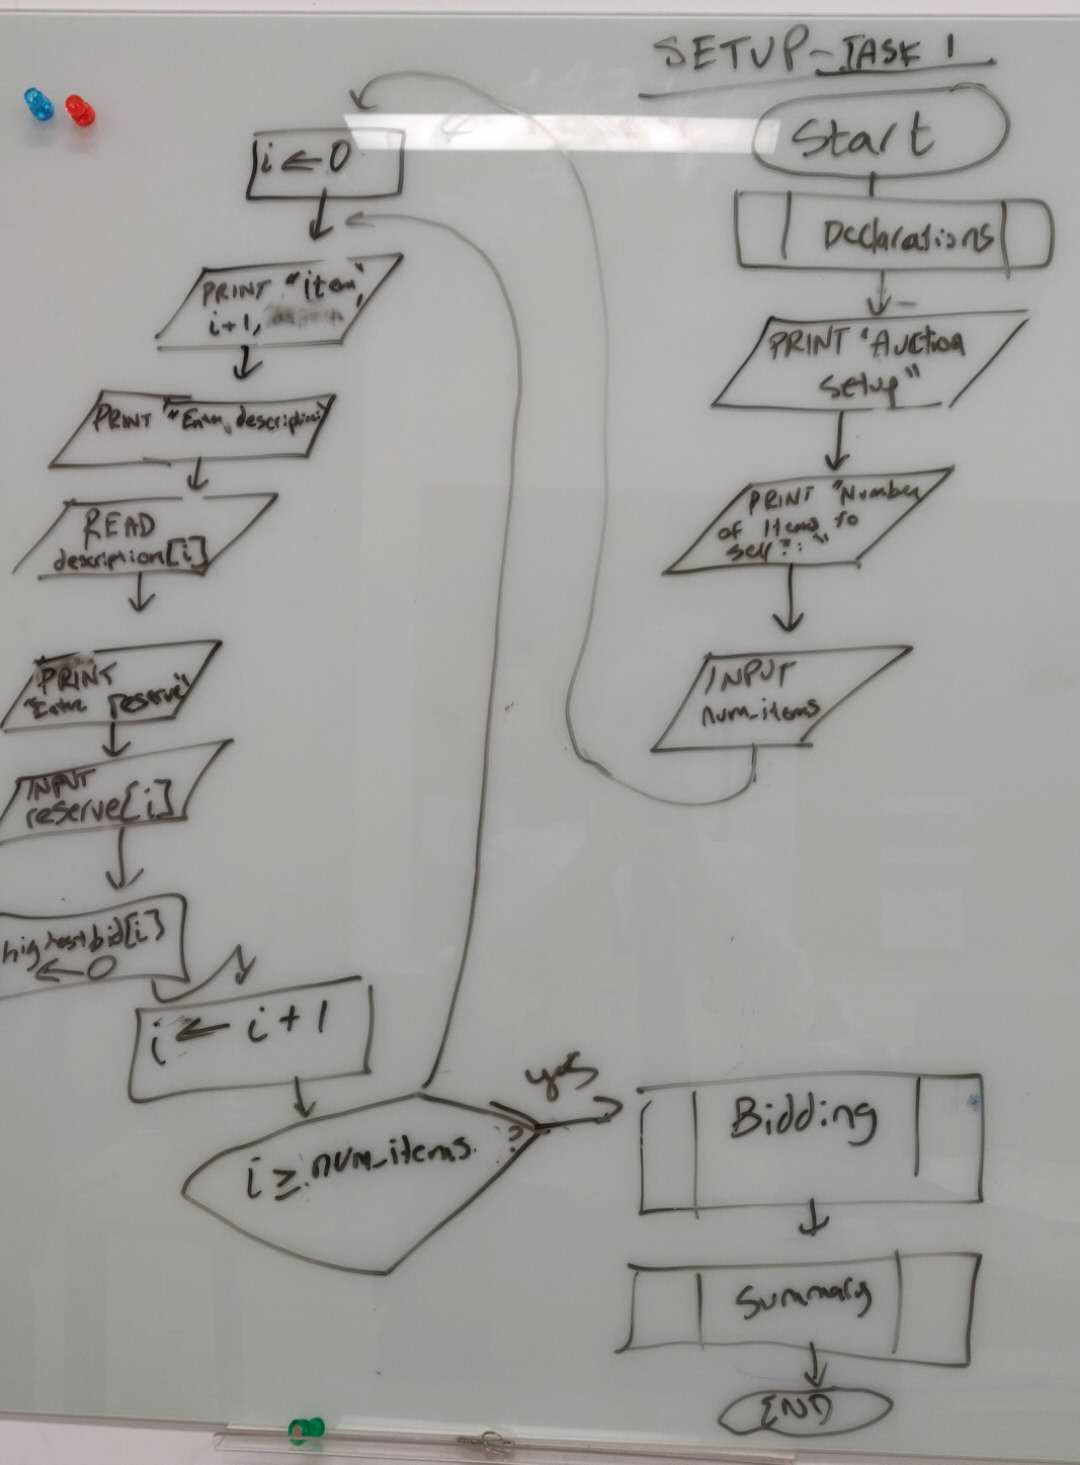 SETUP-TASK 1
Start
Declarations
PRINT "Auction
Setup"
PRINT "Number
of Items to
sell?:"
INPUT
num_items
i ← 0
PRINT "item",
i+1,
PRINT "Enter description"
READ
description[i]
PRINT
"Enter reserve"
INPUT
reserve[i]
highestbid[i]
← 0
i ← i + 1
i ≥ num_items ?
yes
Bidding
Summary
END